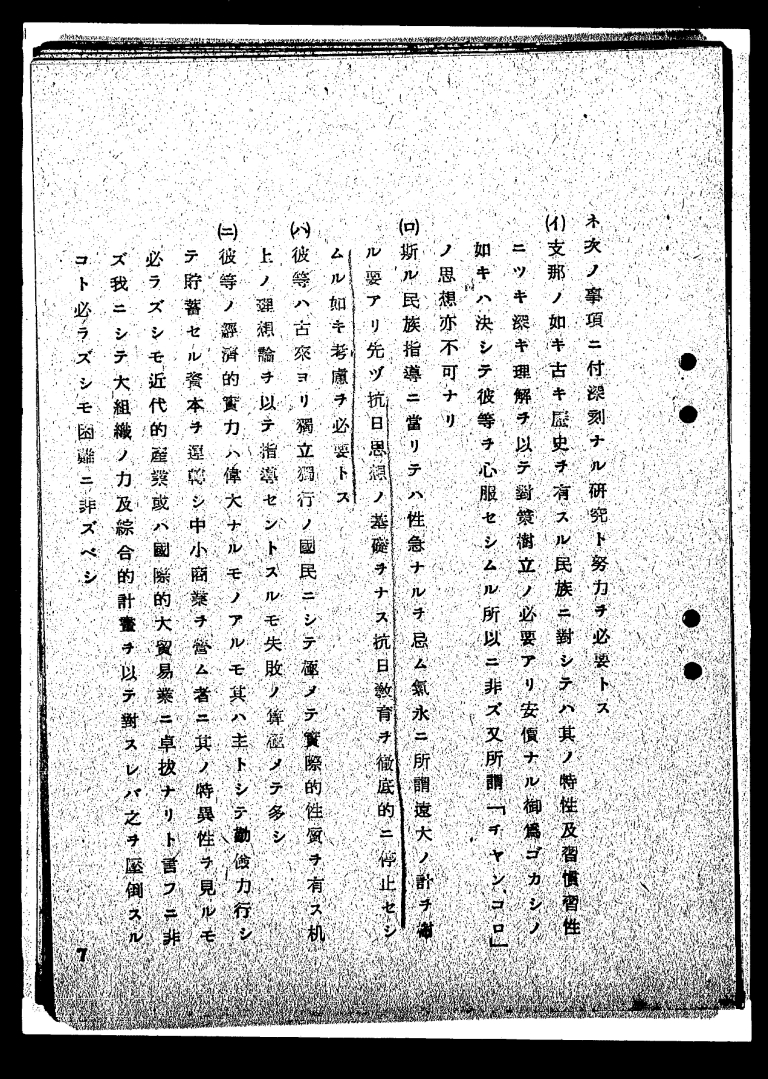 ネ次ノ事項ニ付深刻ナル研究ト努力ヲ必要トス
(イ)支那ノ如キ古キ歴史ヲ有スル民族ニ對シテハ其ノ特性及習慣習性
ニツキ深キ理解ヲ以テ對策樹立ノ必要アリ安價ナル御爲ゴカシノ
如キハ決シテ彼等ヲ心服セシムル所以ニ非ズ又所謂「チヤンコロ」
ノ思想亦不可ナリ
(ロ)斯ル民族指導ニ當リテハ性急ナルヲ忌ム氣永ニ所謂遠大ノ計ヲ
ル要アリ先ヅ抗日思想ノ基礎ヲナス抗日敎育ヲ徹底的ニ停止セシ
ムル如キ考慮ヲ必要トス
(ハ)彼等ハ古來ヨリ獨立獨行ノ國民ニシテ極メテ實際的性質ヲ有ス机
上ノ理想論ヲ以テ指導セントスルモ失敗ノ算極メテ多シ
(ニ)彼等ノ經濟的實力ハ偉大ナルモノアルモ其ハ主トシテ勤儉力行シ
テ貯蓄セル資本ヲ運轉シ中小商業ヲ營ム者ニ其ノ特異性ヲ見ルモ
必ラズシモ近代的産業或ハ國際的大貿易業ニ卓拔ナリト言フニ非
ズ我ニシテ大組織ノ力及綜合的計畫ヲ以テ對スレバ之ヲ壓倒スル
コト必ラズシモ困難ニ非ズベシ
7